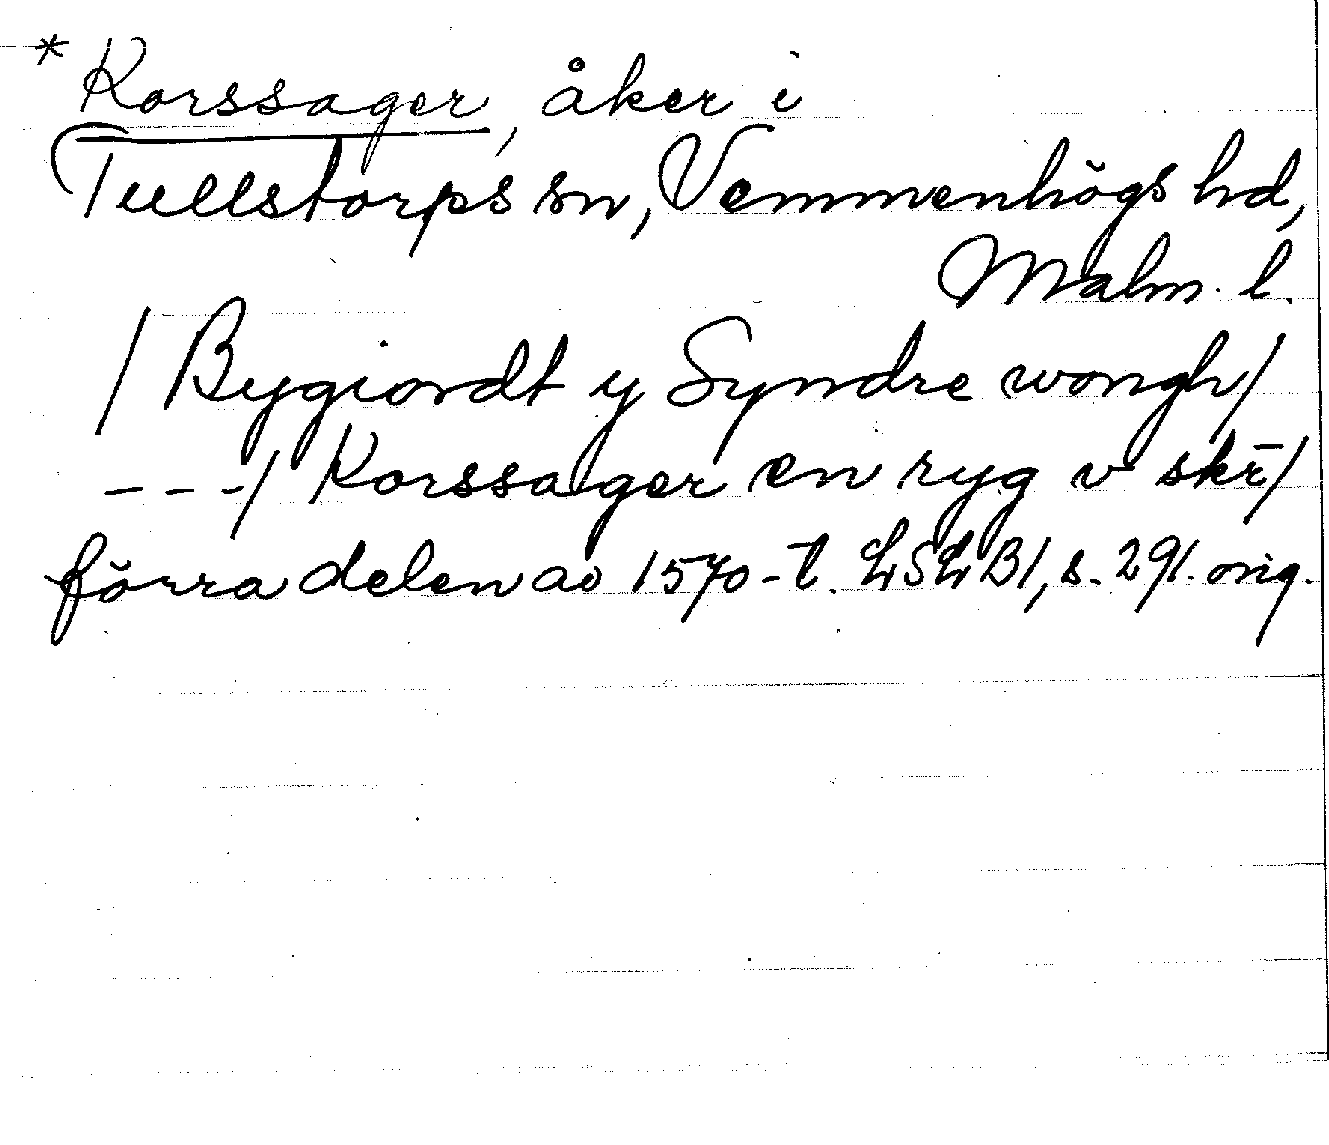 * Korssager, åker i
Tullstorps sn, Vemmenhögs hd,
Malm. l.
/ Bygiordt y Syndre wongh/
---/ Korssager en ryg v skr̄/
förra delen av 1570-t. LSLB1, s. 291. orig.